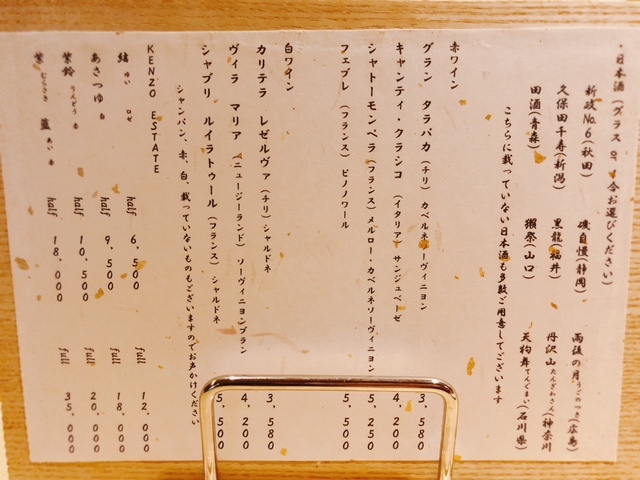 ・日本酒(グラス or 1合お選びください)
新政No.6(秋田) 磯自慢(静岡) 雨後の月うごのつき(広島)
久保田千寿(新潟) 黒龍(福井) 丹沢山たんざわさん(神奈川
田酒(青森) 獺祭(山口) 天狗舞てんぐまい(石川県)
こちらに載っていない日本酒も多数ご用意してございます
赤ワイン
グラン タラパカ(チリ)カベルネソーヴィニヨン 3,580
キャンティ・クラシコ (イタリア)サンジュベーゼ 4,200
シャトーモンペラ(フランス)メルロー・カベルネソーヴィニヨン 5,250
フェブレ (フランス)ピノノワール 5,500
白ワイン
カリテラ レゼルヴァ(チリ)シャルドネ 3,580
ヴィラ マリア (ニュージーランド) ソーヴィニヨンブラン 4,200
シャブリ ルイラトゥール(フランス) シャルドネ 5,500
シャンパン、赤、白、載っていないものもございますのでお声かけください
KENZO ESTATE
結 ゆい ロゼ half 6,500 full 12,000
あさつゆ 白 half 9,500 full 18,000
紫鈴 りんどう 赤 half 10,500 full 20,000
紫 むらさき 藍 あい 赤 half 18,000 full 35,000